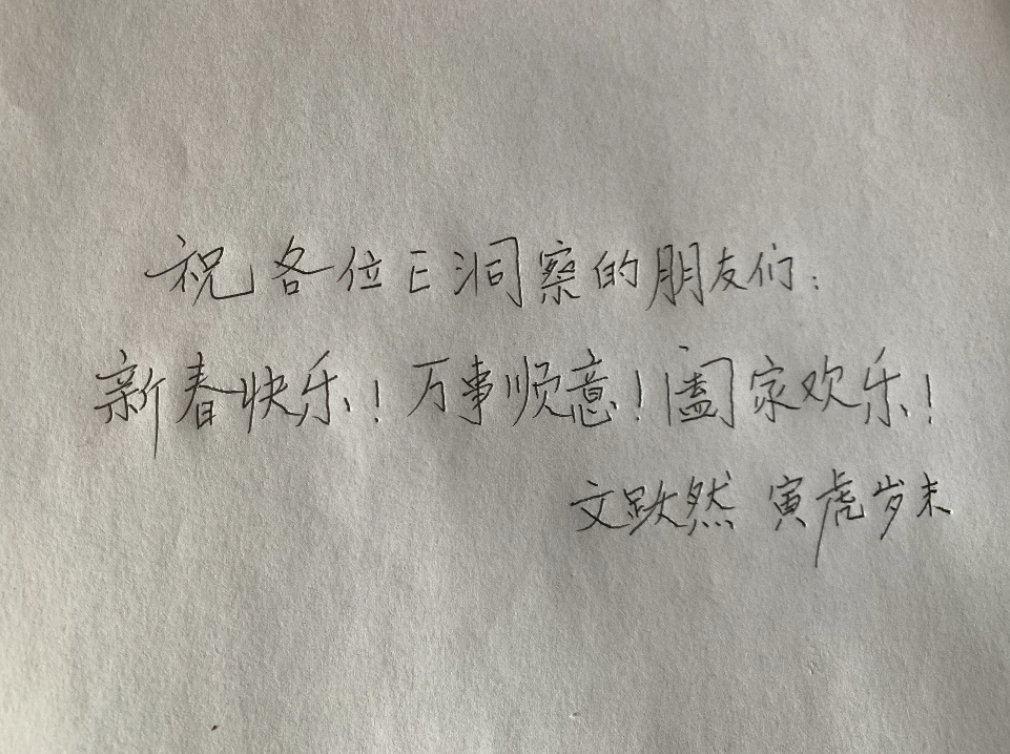 祝各位E洞察的朋友们：
新春快乐！万事顺意！阖家欢乐！
文跃然 寅虎岁末